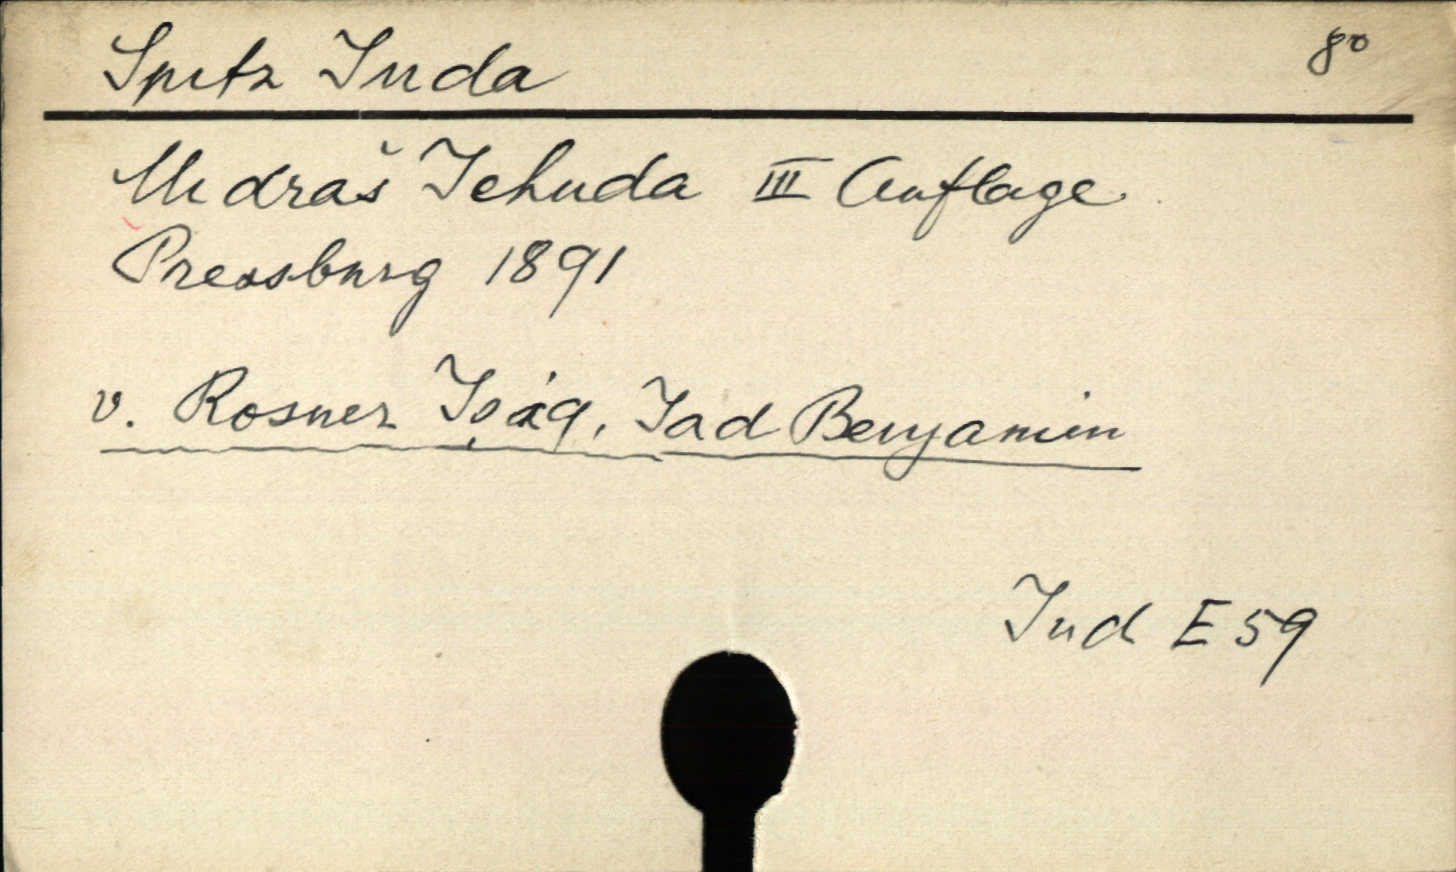 Spitz Juda 8°
Midraš Jehuda III Auflage
Pressburg 1891
v. Rosner Iṣáq, Jad Benjamin
Jud E 59